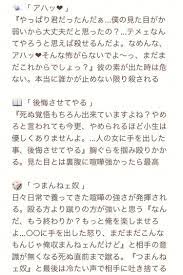 「アハッ❤」
『やっぱり君だったんだぁ…僕の見た目が
弱いから大丈夫だと思ったの?…テメェなん
てやろうと思えば殺せるんだよ。なめんな、
アハッそんな怖がらないでよ〜っ、まだま
だこれからでしょっ?』彼の素が出た時は危
ない。本当に誰かが止めない限り殺される
「後悔させてやる」
『死ぬ覚悟もちろん出来ていますよね?やめ
ろと言われても今更、やめられるほど小生は
優しくありませんよ。…人の女に手を出した
事、後悔させてやる』胸ぐらを掴み殴りかか
る。見た目とは裏腹に喧嘩強かったら最高
「つまんねェ奴」
日々日常で養ってきた喧嘩の強さが発揮され
る。殴る方より蹴りの方が強いと思う『なんだ
、もう終わりか?もっと俺を楽しませる
よ…〇〇に手を出した怒り、まだまだこんな
もんじゃ俺収まんねェんだけど』と相手の意
識が無くなる死ぬ直前まで蹴る。『つまんねェ
奴』と最後は冷たい声で相手に吐き捨